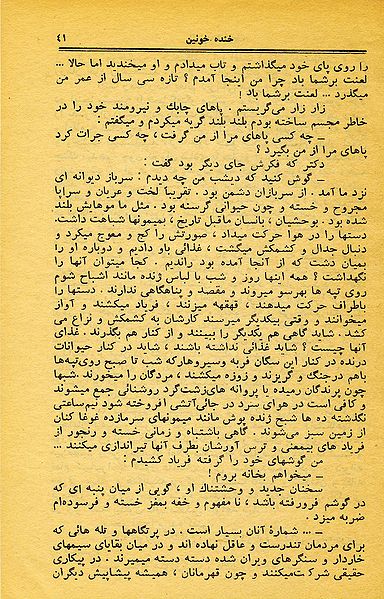 خنده خونین ۴۱
را روی پای خود میگذاشتم و تاب میدادم و او میخندید اما حالا ...
لعنت برشما باد چرا من اینجا آمدم ؟ تازه سی سال از عمر من
میگذرد ... لعنت برشما باد !
زار زار می‌گریستم . پاهای چابك و نیرومند خود را در
خاطر مجسم ساخته بودم بلند بلند گریه میکردم و میگفتم :
ـ چه کسی پاهای مرا از من گرفت ، چه کسی جرات کرد
پاهای مرا از من بگیرد ؟
دکتر که فکرش جای دیگر بود گفت :
ـ گوش کنید که دیشب من چه دیدم : سرباز دیوانه ای
نزد ما آمد . از سربازان دشمن بود . تقریباً لخت و عریان و سراپا
مجروح و خسته و چون حیوانی گرسنه بود . مثل ما موهایش بلند
شده بود . بوحشیان ، بانسان ماقبل تاریخ ، بمیمونها شباهت داشت.
دستها را در هوا حرکت میداد ، صورتش را کج و معوج میکرد و
دنبال جدال و کشمکش میگشت ، غذائی باو دادیم و دوباره او را
بمیان دشت که از آنجا آمده بود راندیم . کجا میتوان آنها را
نگهداشت ؟ همه اینها روز و شب با لباس ژنده مانند اشباح شوم
روی تپه ها بهرسو میروند و مقصد و پناهگاهی ندارند . دستها را
باطراف حرکت میدهند ، قهقهه میزنند ، فریاد میکشند و آواز
میخوانند و وقتی بیکدیگر میرسند کارشان به کشمکش و نزاع می
کشد . شاید گاهی هم یکدیگر را ببینند و از کنار هم بگذرند . غذای
آنها چیست ؟ شاید غذائی نداشته باشند ، شاید در کنار حیوانات
درنده در کنار این سگان فربه وسیروهارکه شب تا صبح روی‌تپه‌ها
باهم درجنگ و گریزند و زوزه میکشند ، مردگان را میخورند .شبها
چون پرندگان رمیده یا پروانه های‌زشت‌گرد روشنائی جمع میشوند
و کافی است در هوای سرد در جائی‌آتشی افروخته شود نیم‌ساعتی
نگذشته ده ها شبح ژنده پوش مانند میمونهای سرمازده غوغا کنان
از زمین سبز می‌شوند . گاهی باشتباه و زمانی خسته و رنجور از
فریاد های بیمعنی و ترس آورشان بطرف آنها تیراندازی میکنند ...
من گوشهای خود را گرفته فریاد کشیدم :
ـ میخواهم بخانه بروم !
سخنان جدید و وحشتناك او ، گویی از میان پنبه ای که
در گوشم فرورفته باشد ، نا مفهوم و خفه بمغز خسته و فرسوده‌ام
ضربه میزد .
ـ ... شمارهٔ آنان بسیار است . در پرتگاهها و تله هائی که
برای مردمان تندرست و عاقل نهاده اند و در میان بقایای سیمهای
خاردار و سنگرهای ویران شده دسته دسته میمیرند . در پیکاری
حقیقی شرکت‌میکنند و چون قهرمانان ، همیشه پیشاپیش دیگران